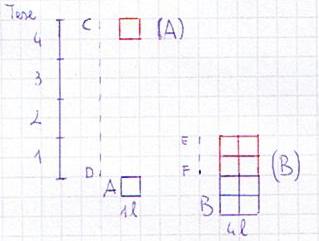 Tese
4
3
2
1
C
(A)
D
A
1l
E
F
(B)
B
4l